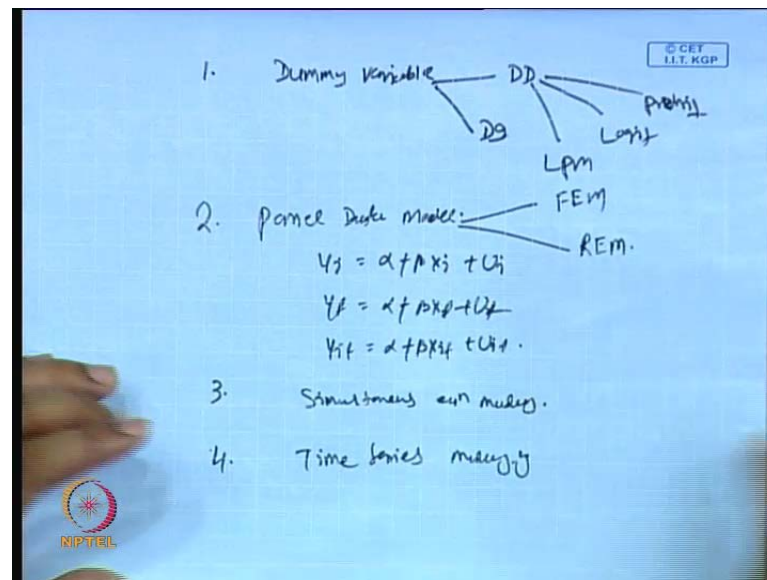 © CET
I.I.T. KGP
1. Dummy variable DD
Probit
Logit
DI
LPM
2. Panel Data Model: FEM
REM.
Yi = α + βXi + Ui
Yt = α + βXt + Ut
Yit = α + βXit + Uit.
3. Simultaneous eqn modeling.
4. Time Series modeling
NPTEL